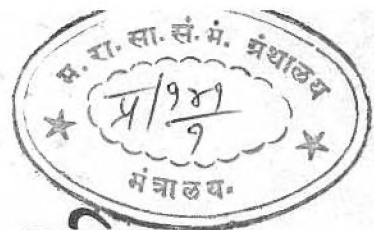 म. रा. सा. सं. मं. ग्रंथालय
प्र/१४१
१
मंत्रालय.